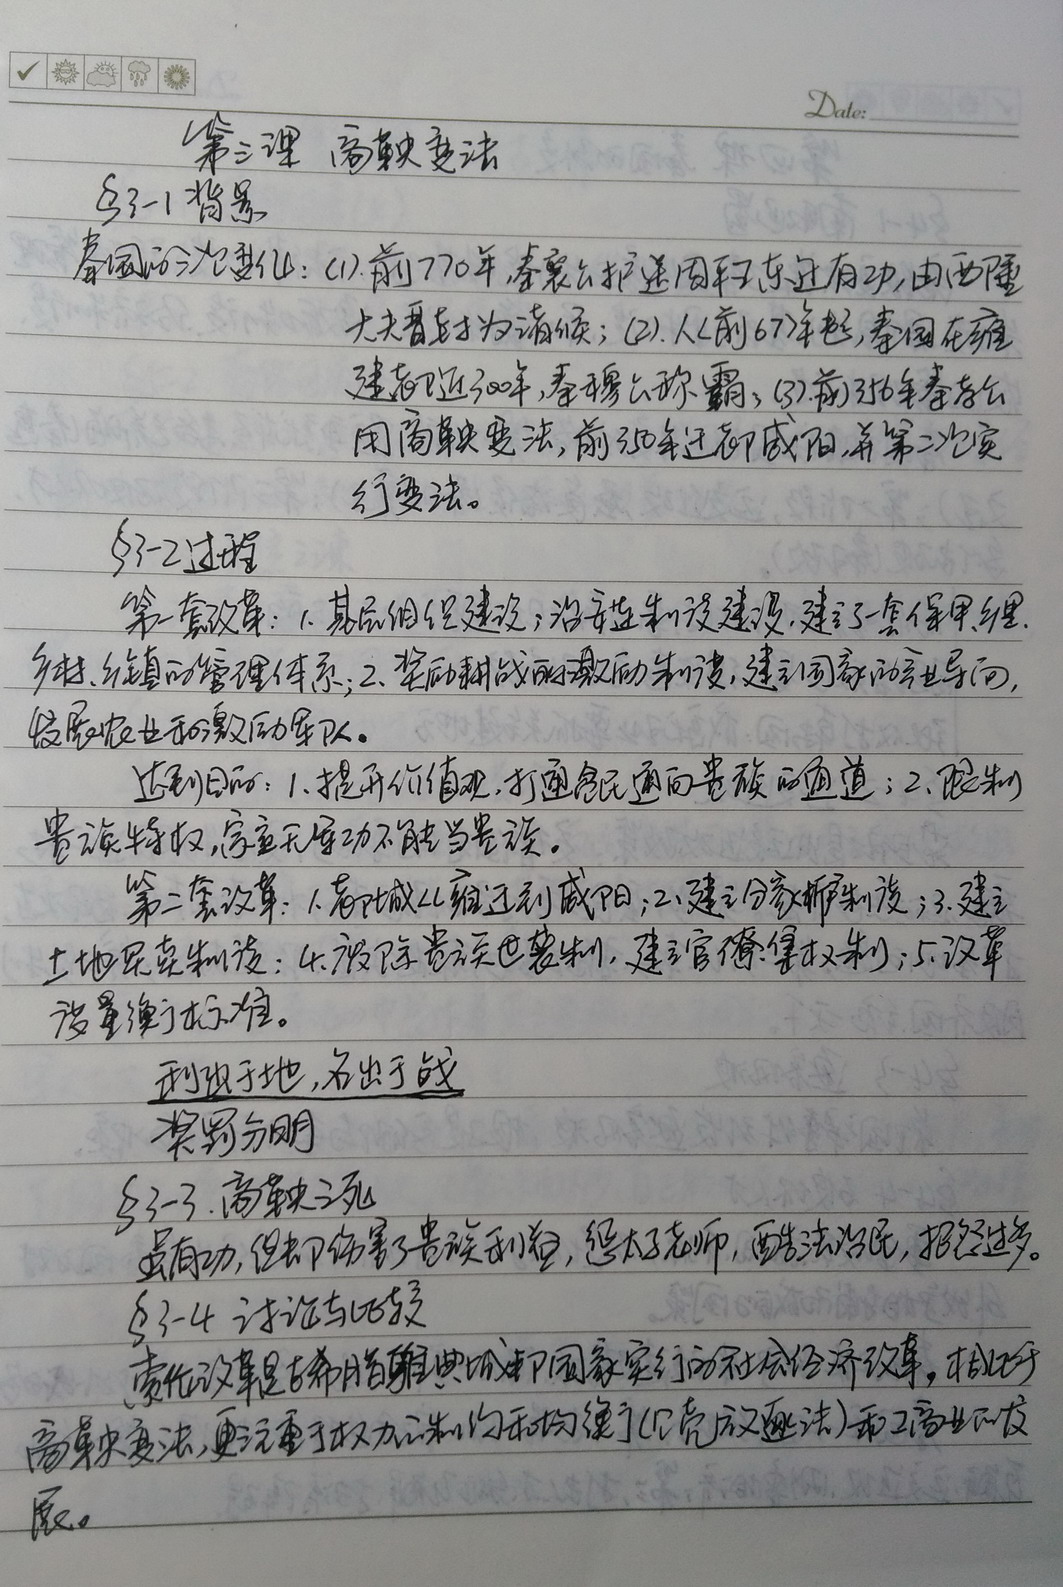 Date:
第三课 商鞅变法
§3-1 背景
秦国的三次变化：(1).前770年,秦襄公护送周平王东迁有功,由西陲
大夫晋封为诸候；(2).从前677年起,秦国在雍
建都近300年,秦穆公称霸；(3).前356年秦孝公
用商鞅变法,前350年迁都咸阳,并第二次实
行变法。
§3-2 过程
第一套改革：1.基层组织建设；治安连制设建设,建立了一套保甲、乡里、
乡村、乡镇的管理体系；2.奖励耕战的激励制度,建立国家的产业导向,
发展农业和激励军队。
达到目的：1.提升价值观,打通贫民通向贵族的通道；2.限制
贵族特权,宗室无军功不能当贵族。
第二套改革：1.都城从雍迁到咸阳；2.建立分家析户制度；3.建立
土地买卖制度；4.废除贵族世袭制,建立官僚集权制；5.改革
度量衡标准。
利出于地,名出于战
奖罚分明
§3-3.商鞅之死
虽有功,但却伤害了贵族利益,惩太子老师,酷法治民,招怨过多。
§3-4 讨论与比较
梭伦改革是古希腊雅典城邦国家实行的社会经济改革。相比于
商鞅变法,更注重于权力的制约和均衡(贝壳放逐法)和工商业的发
展。